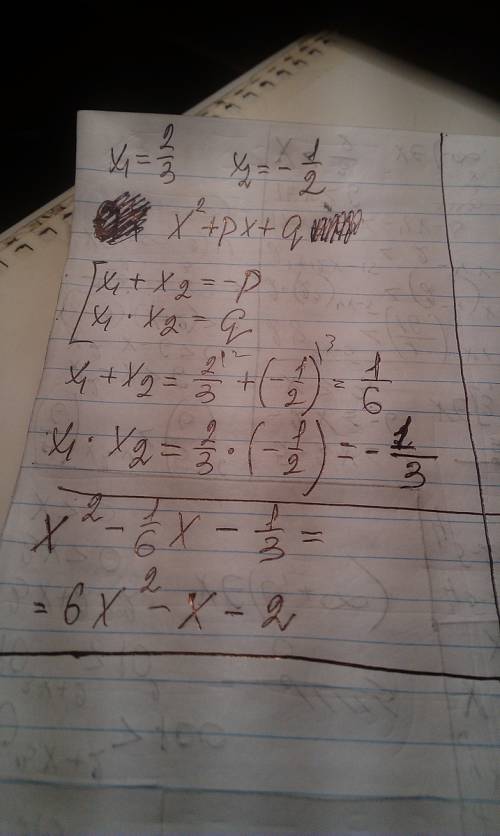 x₁ = 2/3   x₂ = - 1/2
x² + px + q
[x₁ + x₂ = -p
x₁ · x₂ = q
x₁ + x₂ = 2/3 \2 + (- 1/2) \3 = 1/6
x₁ · x₂ = 2/3 · (- 1/2) = - 1/3
x² - 1/6 x - 1/3 =
= 6x² - x - 2